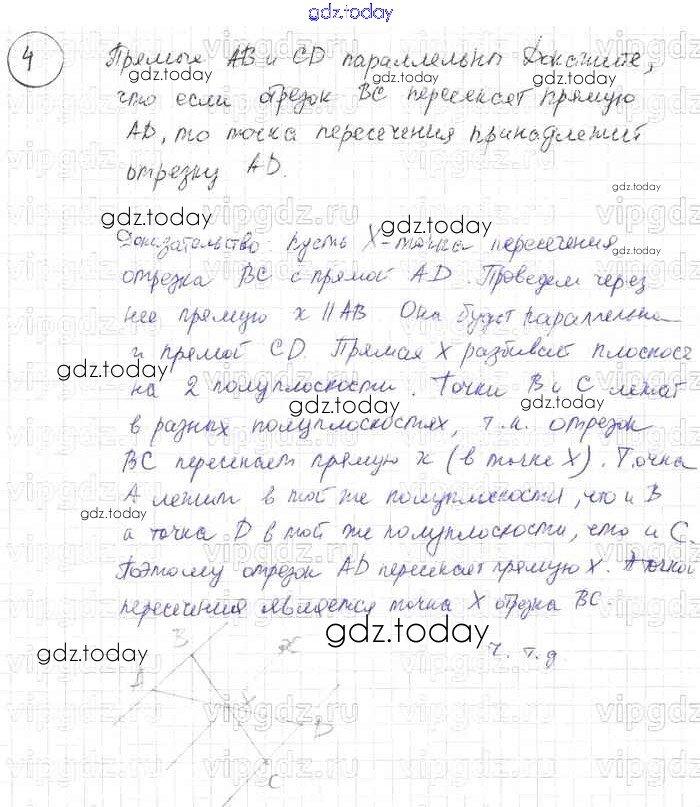 gdz.today
4 Прямые AB и CD параллельны Докажите,
gdz.today gdz.today
что если отрезок BC пересекает прямую
AD, то точка пересечения принадлежит
отрезку AD.
gdz.today
gdz.today gdz.today
Доказательство: пусть X-точка пересечения
отрезка BC с прямой AD. Проведем через
нее прямую x || AB. Она будет параллельна
и прямой CD. Прямая X разбивает плоскос
gdz.today
на 2 полуплоскости. Точки B и C лежат
gdz.today gdz.today
в разных полуплоскостях, т.к. отрезок
BC пересекает прямую x (в точке X). Точка
A лежит в той же полуплоскости, что и B
gdz.today
а точка D в той же полуплоскости, что и C.
Поэтому отрезок AD пересекает прямую X. А точкой
пересечения является точка X отрезка BC.
gdz.today
gdz.today
ч. т. д.
B x
A X
D
C